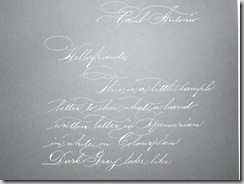 Carl Antonio
Hello friends,
This is a little sample
letter to show what a hand
written letter in Spencerian
in white on Colourplan
Dark Gray looks like